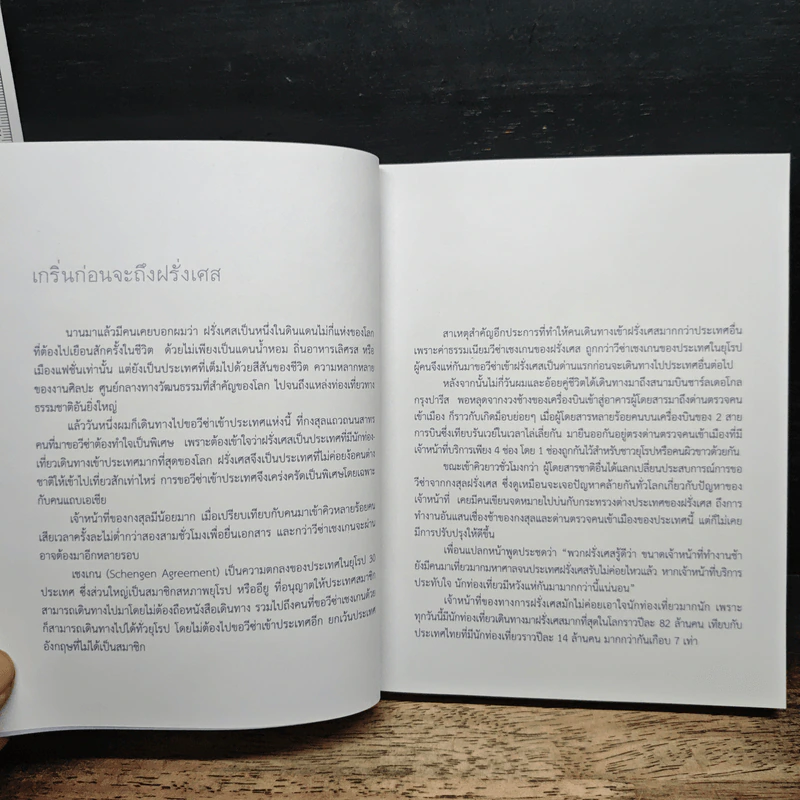 เกริ่นก่อนจะถึงฝรั่งเศส
นานมาแล้วมีคนเคยบอกผมว่า ฝรั่งเศสเป็นหนึ่งในดินแดนไม่กี่แห่งของโลก
ที่ต้องไปเยือนสักครั้งในชีวิต ด้วยไม่เพียงเป็นแดนน้ำหอม ถิ่นอาหารเลิศรส หรือ
เมืองแฟชั่นเท่านั้น แต่ยังเป็นประเทศที่เต็มไปด้วยสีสันของชีวิต ความหลากหลาย
ของงานศิลปะ ศูนย์กลางทางวัฒนธรรมที่สำคัญของโลก ไปจนถึงแหล่งท่องเที่ยวทาง
ธรรมชาติอันยิ่งใหญ่
แล้ววันหนึ่งผมก็เดินทางไปขอวีซ่าเข้าประเทศแห่งนี้ ที่กงสุลแถวถนนสาทร
คนที่มาขอวีซ่าต้องทำใจเป็นพิเศษ เพราะต้องเข้าใจว่าฝรั่งเศสเป็นประเทศที่มีนักท่อง-
เที่ยวเดินทางเข้าประเทศมากที่สุดของโลก ฝรั่งเศสจึงเป็นประเทศที่ไม่ค่อยง้อคนต่าง
ชาติให้เข้าไปเที่ยวสักเท่าไหร่ การขอวีซ่าเข้าประเทศจึงเคร่งครัดเป็นพิเศษโดยเฉพาะ
กับคนแถบเอเชีย
เจ้าหน้าที่ของกงสุลมีน้อยมาก เมื่อเปรียบเทียบกับคนมาเข้าคิวหลายร้อยคน
เสียเวลาครั้งละไม่ต่ำกว่าสองสามชั่วโมงเพื่อยื่นเอกสาร และกว่าวีซ่าเชงเกนจะผ่าน
อาจต้องมาอีกหลายรอบ
เชงเกน (Schengen Agreement) เป็นความตกลงของประเทศในยุโรป 30
ประเทศ ซึ่งส่วนใหญ่เป็นสมาชิกสหภาพยุโรป หรืออียู ที่อนุญาตให้ประเทศสมาชิก
สามารถเดินทางไปมาโดยไม่ต้องถือหนังสือเดินทาง รวมไปถึงคนที่ขอวีซ่าเชงเกนด้วย
ก็สามารถเดินทางไปได้ทั่วยุโรป โดยไม่ต้องไปขอวีซ่าเข้าประเทศอีก ยกเว้นประเทศ
อังกฤษที่ไม่ได้เป็นสมาชิก
สาเหตุสำคัญอีกประการที่ทำให้คนเดินทางเข้าฝรั่งเศสมากกว่าประเทศอื่น
เพราะค่าธรรมเนียมวีซ่าเชงเกนของฝรั่งเศส ถูกกว่าวีซ่าเชงเกนของประเทศในยุโรป
ผู้คนจึงแห่กันมาขอวีซ่าเข้าฝรั่งเศสเป็นด่านแรกก่อนจะเดินทางไปประเทศอื่นต่อไป
หลังจากนั้นไม่กี่วันผมและอ้อยคู่ชีวิตได้เดินทางมาถึงสนามบินชาร์ลเดอโกล
กรุงปารีส พอหลุดจากวงช้างของเครื่องบินเข้าสู่อาคารผู้โดยสารมาถึงด่านตรวจคน
เข้าเมือง ก็ราวกับเกิดม็อบย่อยๆ เมื่อผู้โดยสารหลายร้อยคนบนเครื่องบินของ 2 สาย
การบินซึ่งเทียบรันเวย์ในเวลาไล่เลี่ยกัน มายืนออกันอยู่ตรงด่านตรวจคนเข้าเมืองที่มี
เจ้าหน้าที่บริการเพียง 4 ช่อง โดย 1 ช่องถูกกันไว้สำหรับชาวยุโรปหรือคนผิวขาวด้วยกัน
ขณะเข้าคิวยาวชั่วโมงกว่า ผู้โดยสารชาติอื่นได้แลกเปลี่ยนประสบการณ์การขอ
วีซ่าจากกงสุลฝรั่งเศส ซึ่งดูเหมือนจะเจอปัญหาคล้ายกันทั่วโลกเกี่ยวกับปัญหาของ
เจ้าหน้าที่ เคยมีคนเขียนจดหมายไปบ่นกับกระทรวงต่างประเทศของฝรั่งเศส ถึงการ
ทำงานอันแสนเชื่องช้าของกงสุลและด่านตรวจคนเข้าเมืองของประเทศนี้ แต่ก็ไม่เคย
มีการปรับปรุงให้ดีขึ้น
เพื่อนแปลกหน้าพูดประชดว่า “พวกฝรั่งเศสรู้ดีว่า ขนาดเจ้าหน้าที่ทำงานช้า
ยังมีคนมาเที่ยวมากมหาศาลจนประเทศฝรั่งเศสรับไม่ค่อยไหวแล้ว หากเจ้าหน้าที่บริการ
ประทับใจ นักท่องเที่ยวมิหวังแห่กันมามากกว่านี้แน่นอน”
เจ้าหน้าที่ของทางการฝรั่งเศสมักไม่ค่อยเอาใจนักท่องเที่ยวมากนัก เพราะ
ทุกวันนี้มีนักท่องเที่ยวเดินทางมาฝรั่งเศสมากที่สุดในโลกราวปีละ 82 ล้านคน เทียบกับ
ประเทศไทยที่มีนักท่องเที่ยวราวปีละ 14 ล้านคน มากกว่ากันเกือบ 7 เท่า